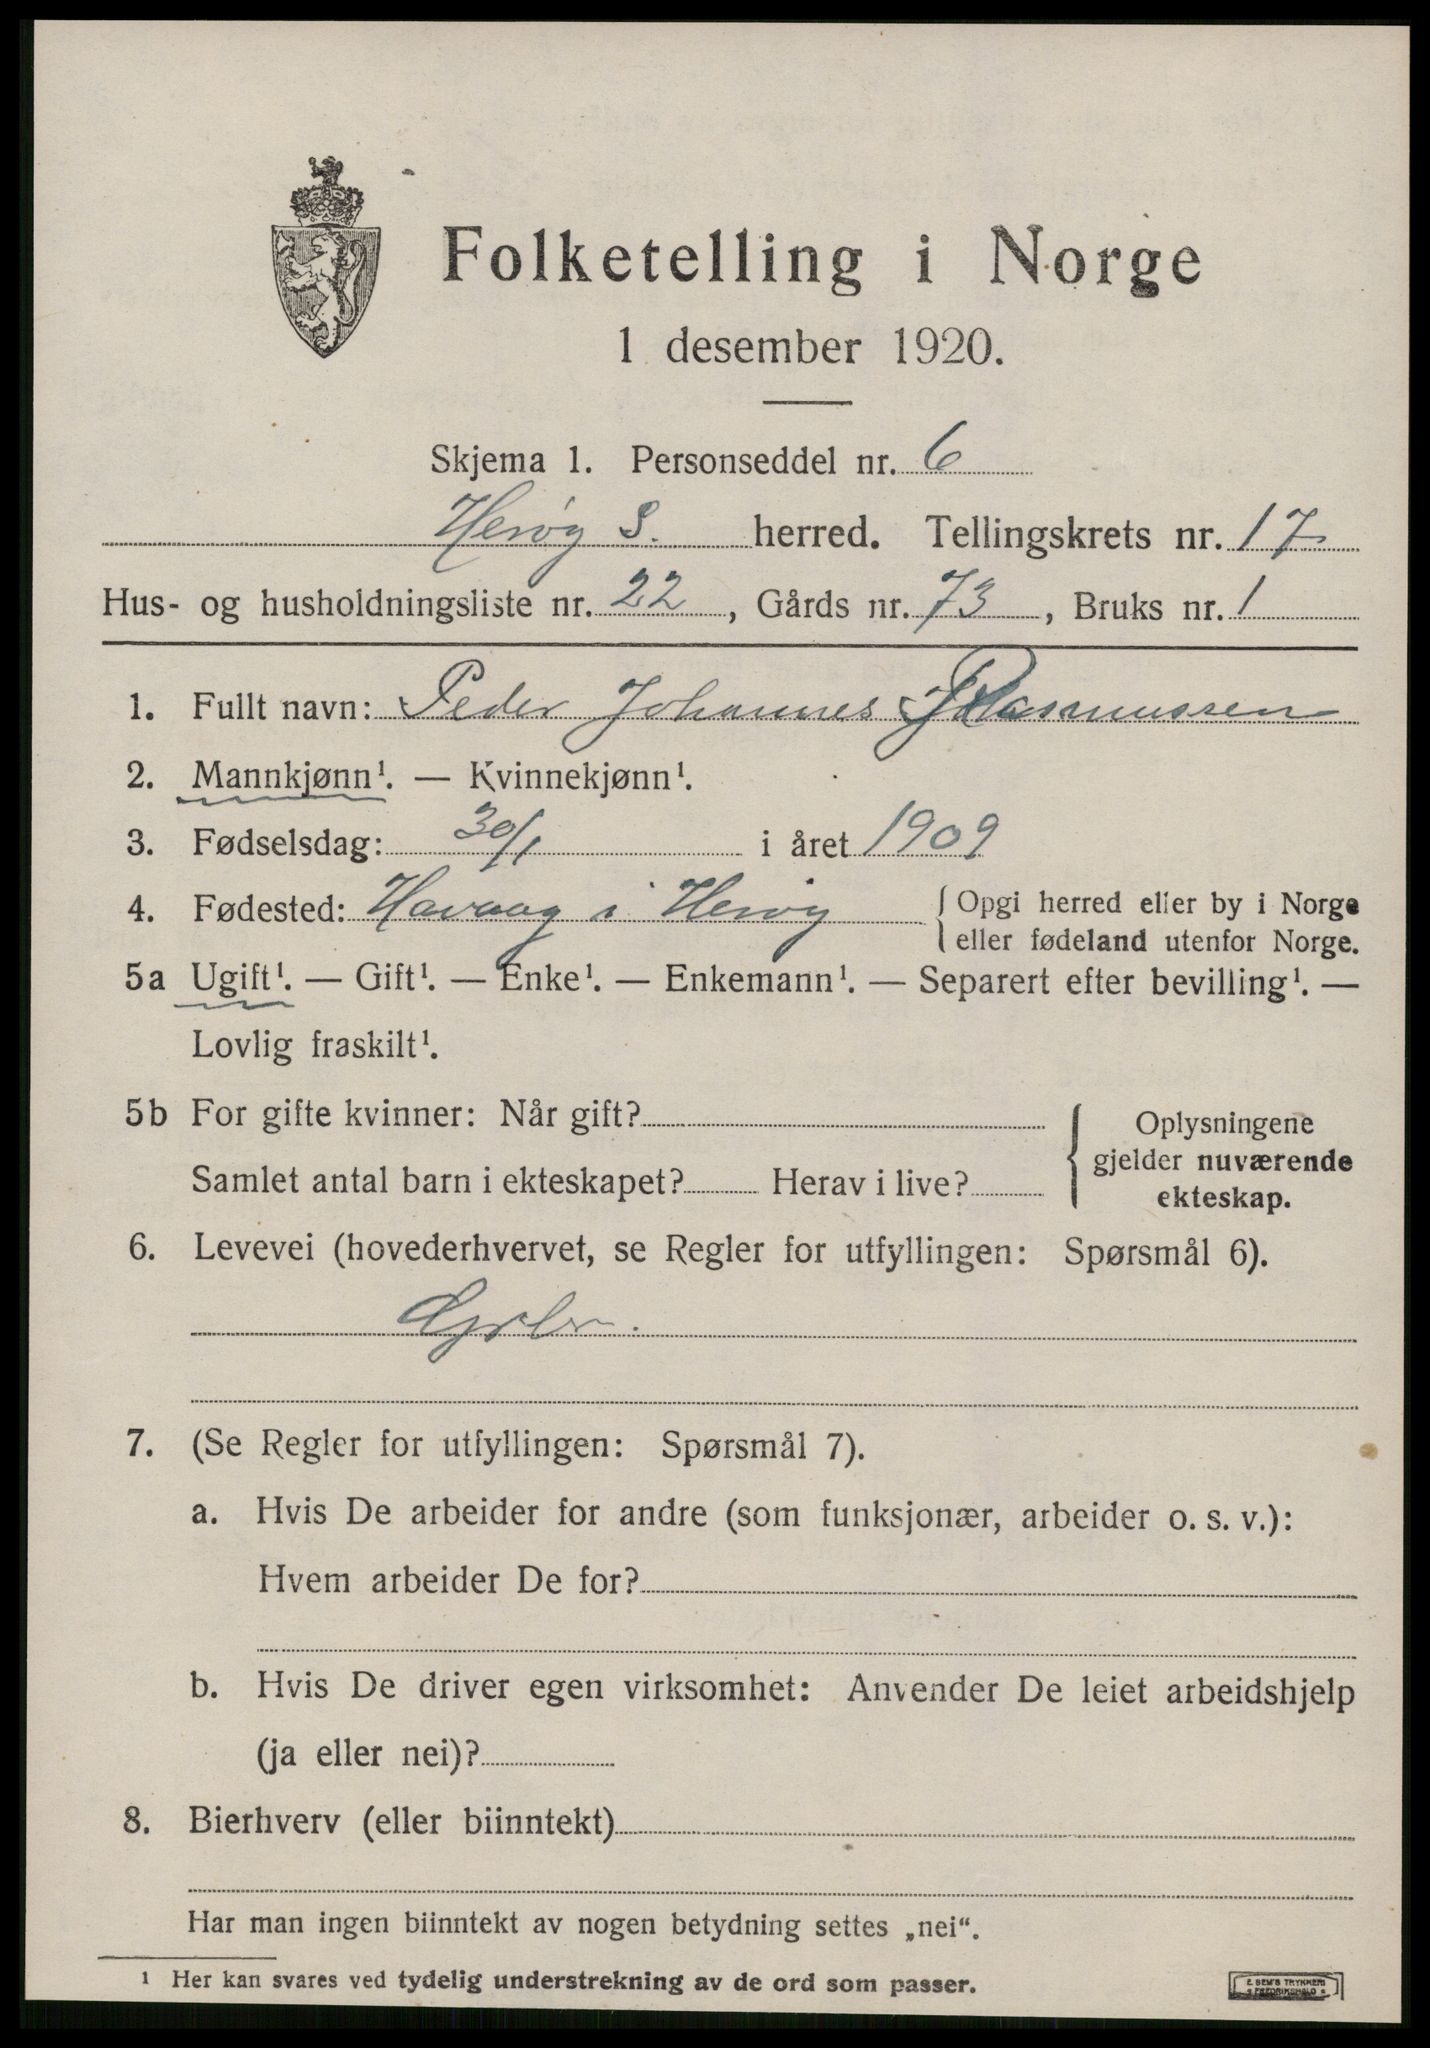 Folketelling i Norge
1 desember 1920.
Skjema 1. Personseddel nr. 6
Herøy S. herred. Tellingskrets nr. 17
Hus- og husholdningsliste nr. 22, Gårds nr. 73, Bruks nr. 1
1. Fullt navn: Peder Johannes Rasmussen
2. Mannkjønn¹. — Kvinnekjønn¹.
3. Fødselsdag: 30/1 i året 1909
4. Fødested: Havaag i Herøy { Opgi herred eller by i Norge
eller fødeland utenfor Norge.
5a Ugift¹. — Gift¹. — Enke¹. — Enkemann¹. — Separert efter bevilling¹. —
Lovlig fraskilt¹.
5b For gifte kvinner: Når gift? { Oplysningene
gjelder nuværende
ekteskap.
Samlet antal barn i ekteskapet? Herav i live?
6. Levevei (hovederhvervet, se Regler for utfyllingen: Spørsmål 6).
7. (Se Regler for utfyllingen: Spørsmål 7).
a. Hvis De arbeider for andre (som funksjonær, arbeider o. s. v.):
Hvem arbeider De for?
b. Hvis De driver egen virksomhet: Anvender De leiet arbeidshjelp
(ja eller nei)?
8. Bierhverv (eller biinntekt)
Har man ingen biinntekt av nogen betydning settes „nei“.
¹ Her kan svares ved tydelig understrekning av de ord som passer.
E. SEM'S TRYKKERI
FREDRIKSHALD